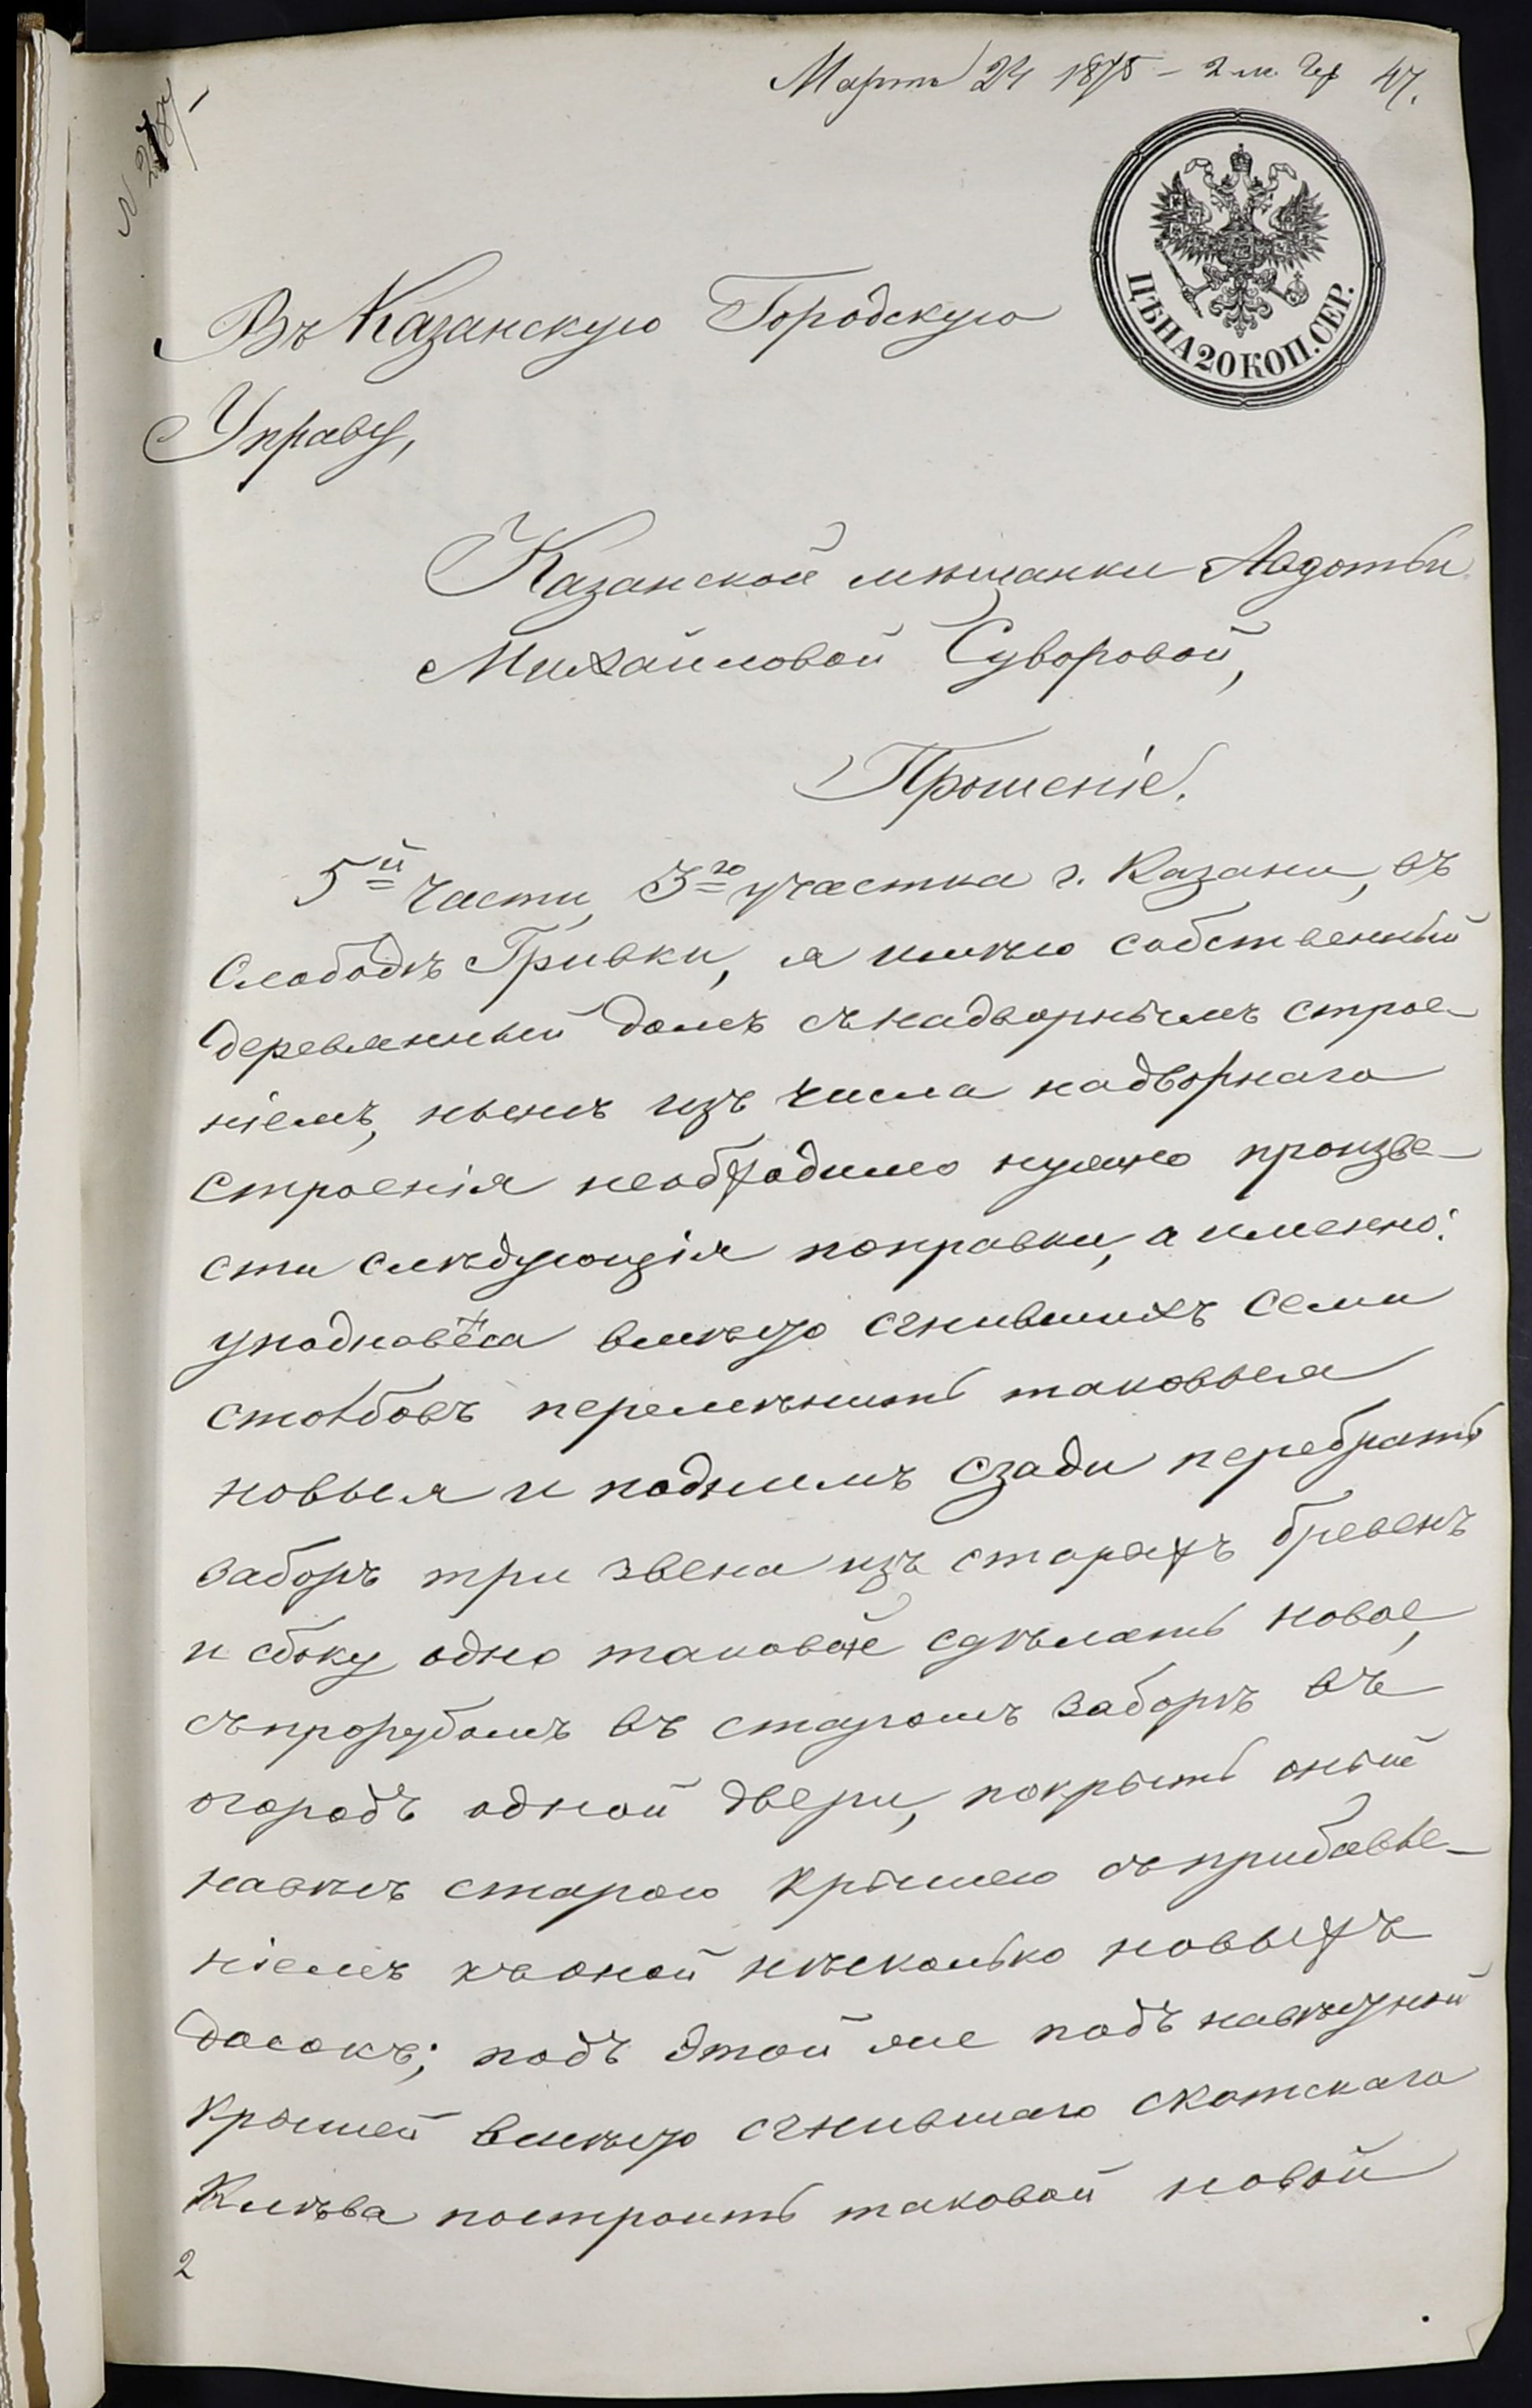 Марта 24 1875 – 2 ст. 47.
Въ Казанскую Городскую
Управу,
ЦѢНА 20 КОП. СЕР.
Казанской мѣщанки Авдотьи
Михайловой Суворовой,
Прошеніе.
5й части, 3го участка г. Казани, въ
слободѣ Гривки, я имѣю собственный
деревянный домъ съ надворнымъ строе-
ніемъ, нынѣ изъ числа надворнаго
строенія необходимо нужно произве-
сти слѣдующія поправки, а именно:
у поднавѣса вмѣсто сгнившихъ семи
столбовъ перемѣнить таковыя
новыя и подъ нимъ сзади перебрать
заборъ три звена изъ старыхъ бревенъ
и сбоку одно таковое сдѣлать новое,
съ прорубомъ въ старомъ заборѣ въ
огородъ одной двери, покрыть оный
навѣсъ старою крышею съ прибавле-
ніемъ къ оной нѣсколько новыхъ
досокъ; подъ этой же поднавѣсной
крышей вмѣсто сгнившаго скотскаго
хлѣва построить таковой новой
2